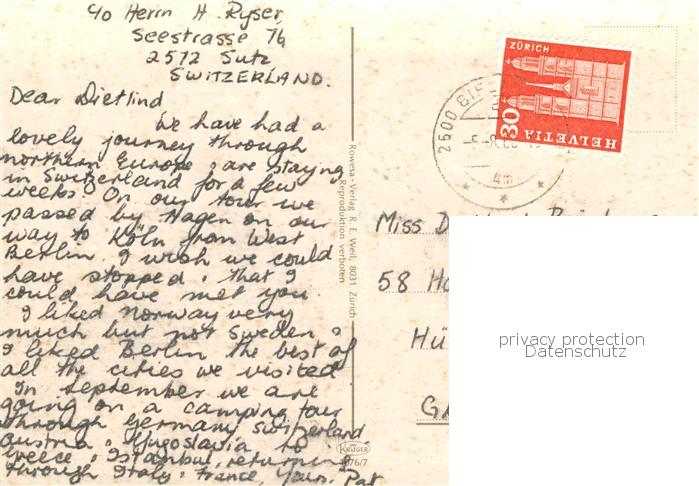 c/o Herrn H. Ryser,
Seestrasse 76
2572 Sutz
SWITZERLAND.
Dear Dietlind
We have had a
lovely journey through
northern Europe & are staying
in Switzerland for a few
weeks. On our tour we
passed by Hagen on our
way to Köln from West
Berlin. I wish we could
have stopped & that I
could have met you.
I liked Norway very
much but not Sweden &
I liked Berlin the best of
all the cities we visited
In September we are
going on a camping tour
through Germany Switzerland
Austria & Yugoslavia to
Greece & Istanbul, returning
through Italy & France, Yours. Pat
Rowesa-Verlag R. E. Weil, 8031 Zürich
Reproduktion verboten
KRÜGER
ZÜRICH
80
HELVETIA
2500
Miss
58
privacy protection
Datenschutz